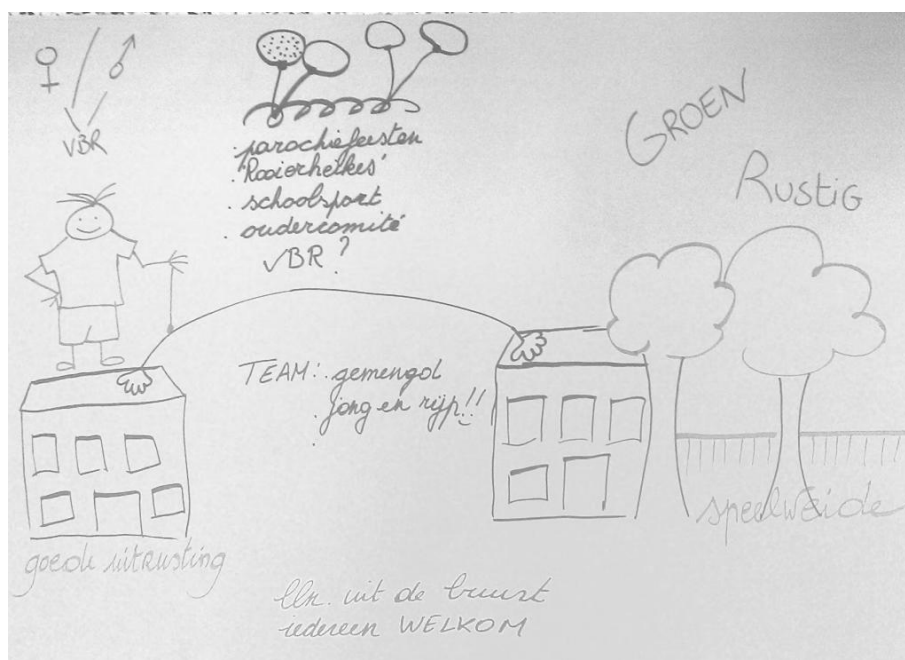 VBR
. parochiefeesten
. 'Rooierheikes'
. schoolsport
. oudercomité
VBR ?
GROEN
RUSTIG
TEAM: . gemengd
. jong en rijp!!
.
speelweide
goede uitrusting
lln. uit de buurt
iedereen WELKOM